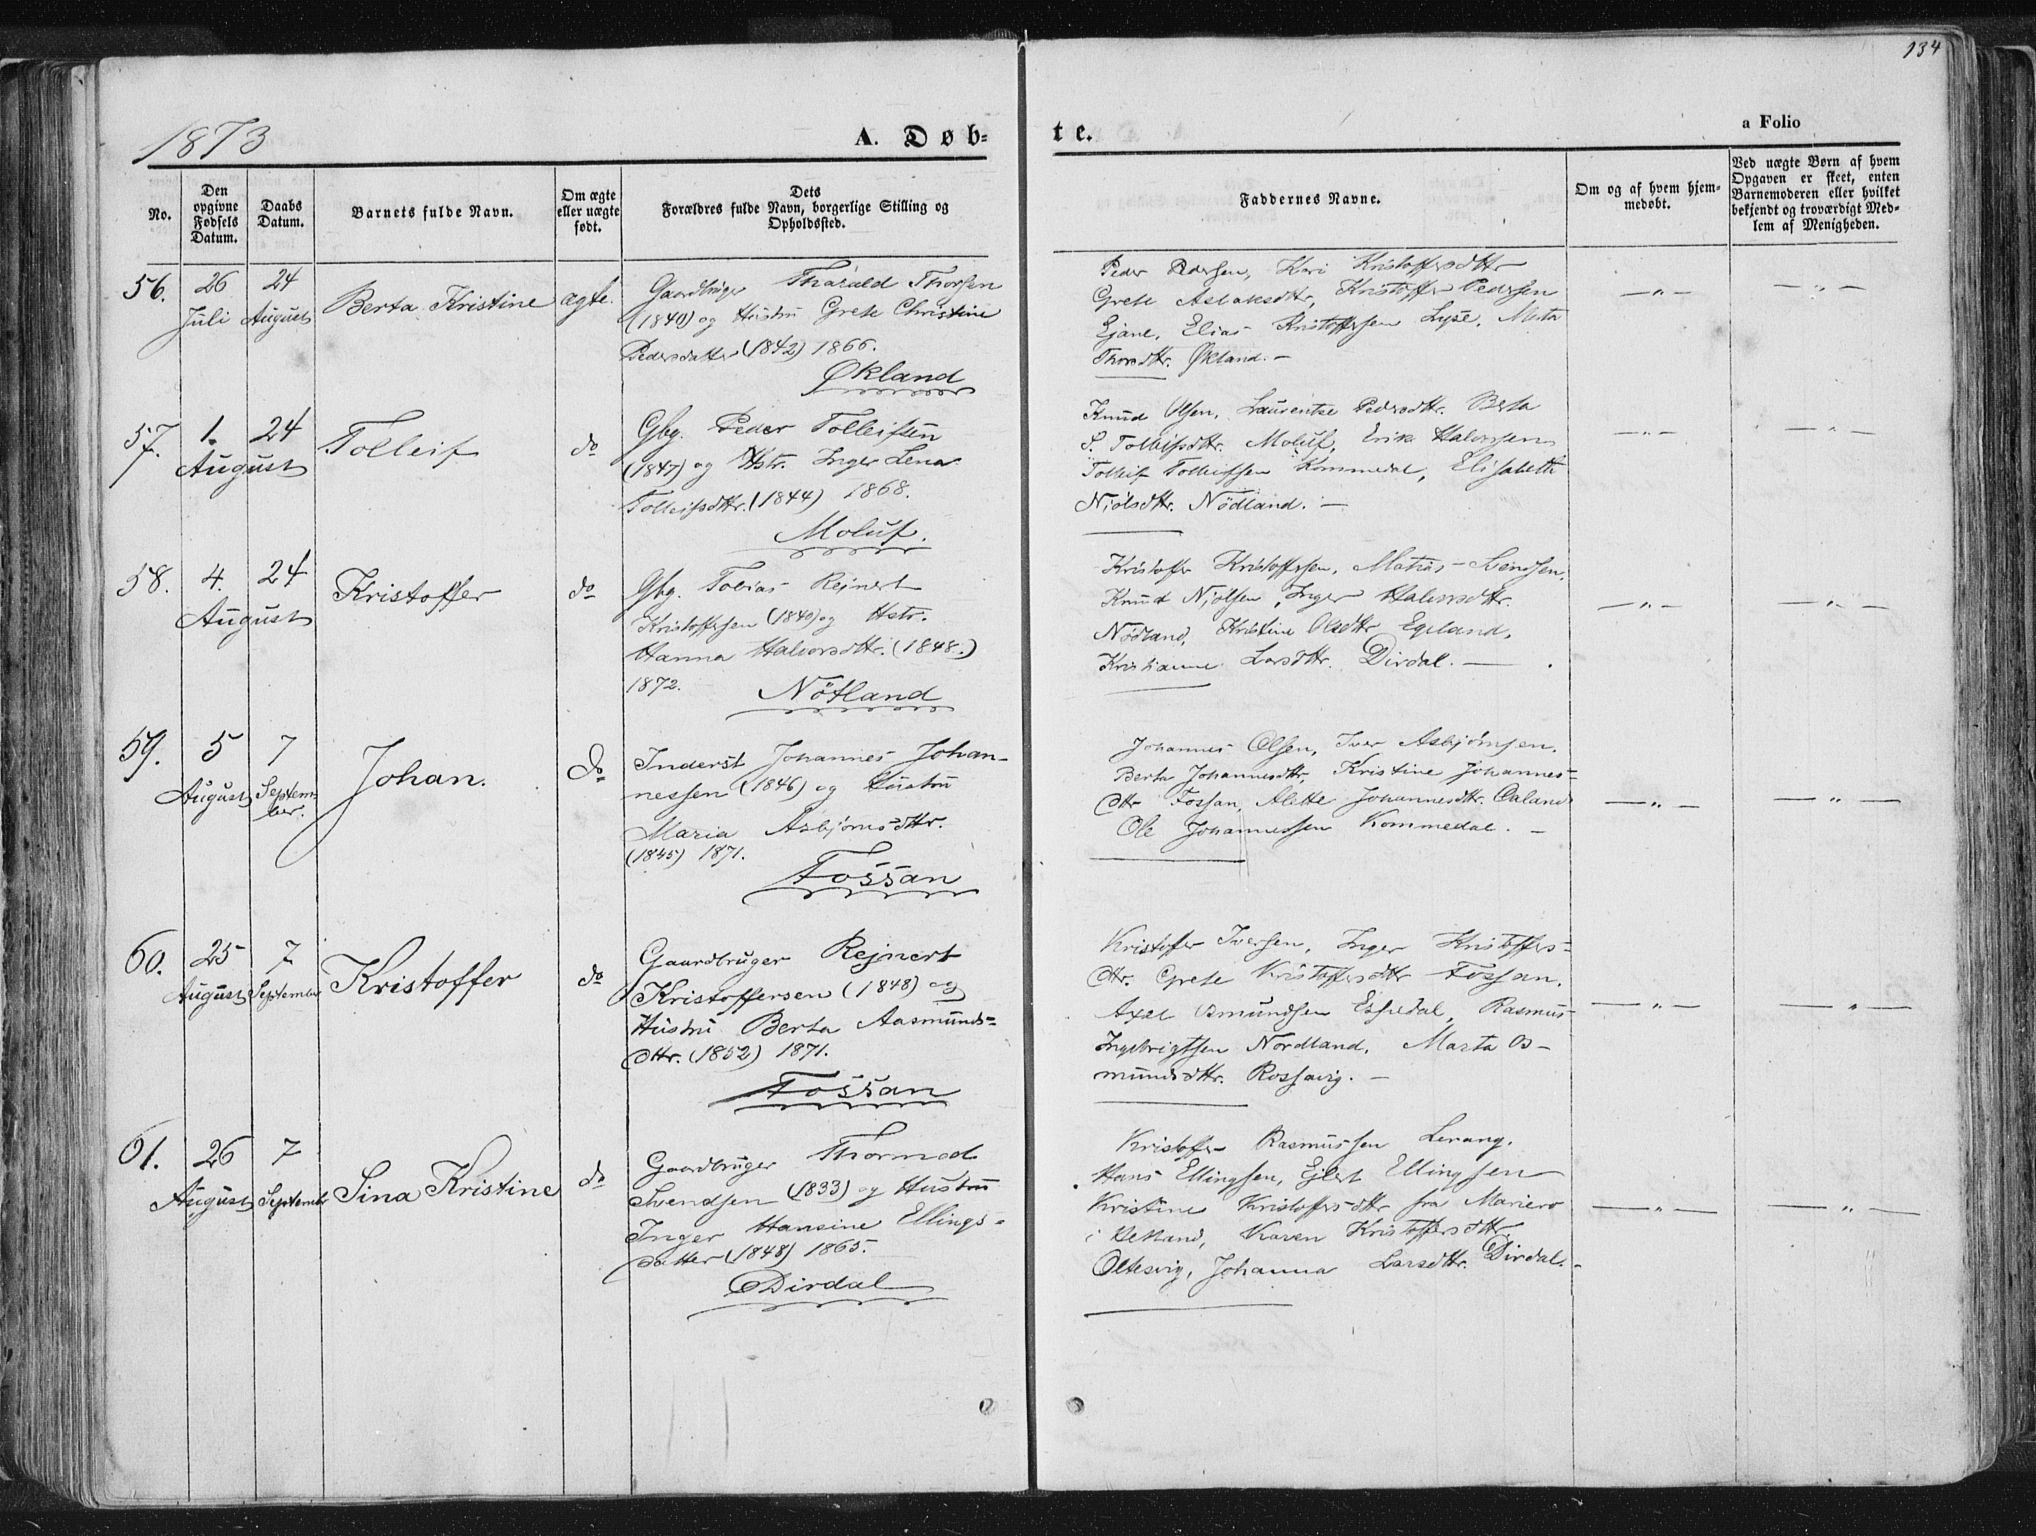 134
1873
A. Døb-
te.
a Folio
No.
Den
opgivne
Fødsels
Datum.
Daabs
Datum.
Barnets fulde Navn.
Om ægte
eller uægte
født.
Dets
Forældres fulde Navn, borgerlige Stilling og
Opholdssted.
Faddernes Navne.
Om og af hvem hjem-
medøbt.
Ved uægte Børn af hvem
Opgaven er skeet, enten
Barnemoderen eller hvilket
bekjendt og troværdigt Med-
lem af Menigheden.
56.
26
Juli
24
August
Berta Kristine
ægte.
Gaardbruger Tharald Thorsen
(1840) og Hustru Grete Christine
Pedersdatter (1842) 1866.
Økland
Peder Pedersen, Kari Kristoffersdttr
Grete Aslaksdttr, Kristoffer Pedersen
Ejane, Elias Kristoffersen Lyse, Meta
Thorsdttr. Økland. —
— „ —
— „ —
57.
1.
August
24
Tolleif
do
Gbg. Peder Tolleifsen
(1847) og Hstr. Inger Lena
Tolleifsdttr. (1844) 1868.
Moluf.
Knud Olsen, Laurentse Pedersdttr. Berta
S. Tolleifsdttr. Moluf, Erik Halvorsen
Tolleif Tolleifsen Kommedal, Elisabeth
Niólsdttr. Nödland. —
— „ —
— „ —
58.
4.
August
24
Kristoffer
do
Gbg. Tobias Rejnert
Kristoffersen (1840) og Hstr.
Hanna Halvorsdttr. (1848.)
1872.
Nötland
Kristoffer Kristoffersen, Matias Svendsen,
Knud Niólsen, Inger Halvorsdttr.
Nödland, Kristine Olsdttr Egeland,
Kristianne Larsdttr. Dirdal. —
— „ —
— „ —
59.
5
August
7
Septem-
ber.
Johan.
do
Inderst Johannes Johan-
nessen (1846) og Hustru
Maria Asbjörnsdttr.
(1845) 1871.
Fossan
Johannes Olsen, Iver Asbjörnsen.
Berta Johannesdttr, Kristine Johannes=
dttr Fossan, Alette Johannesdttr. Oaland
Ole Johannessen Kommedal. —
— „ —
— „ —
60.
25
August
7
September
Kristoffer
do
Gaardbruger Rejnert
Kristoffersen (1848) og
Hustru Berta Aasmunds=
dttr. (1852) 1871.
Fossan
Kristoffer Iversen, Inger Kristoffers=
dttr. Grete Kristoffersdttr Fossan.
Axel Osmundsen Espedal, Rasmus
Ingebrigtsen Nordland. Marta Os-
mundsdttr. Rossavig. —
— „ —
— „ —
61.
26
August
7
September
Sina Kristine
do
Gaardbruger Thormod
Svendsen (1833) og Hustru
Inger Hansine Ellings=
datter (1848) 1865.
Dirdal
Kristoffer Rasmussen Lerang.
Hans Ellingsen, Ejlert Ellingsen
Kristine Kristoffersdttr fra Mariero
i Hetland, Karen Kristoffersdttr
Oltesvig, Johanna Larsdttr. Dirdal. —
— „ —
— „ —